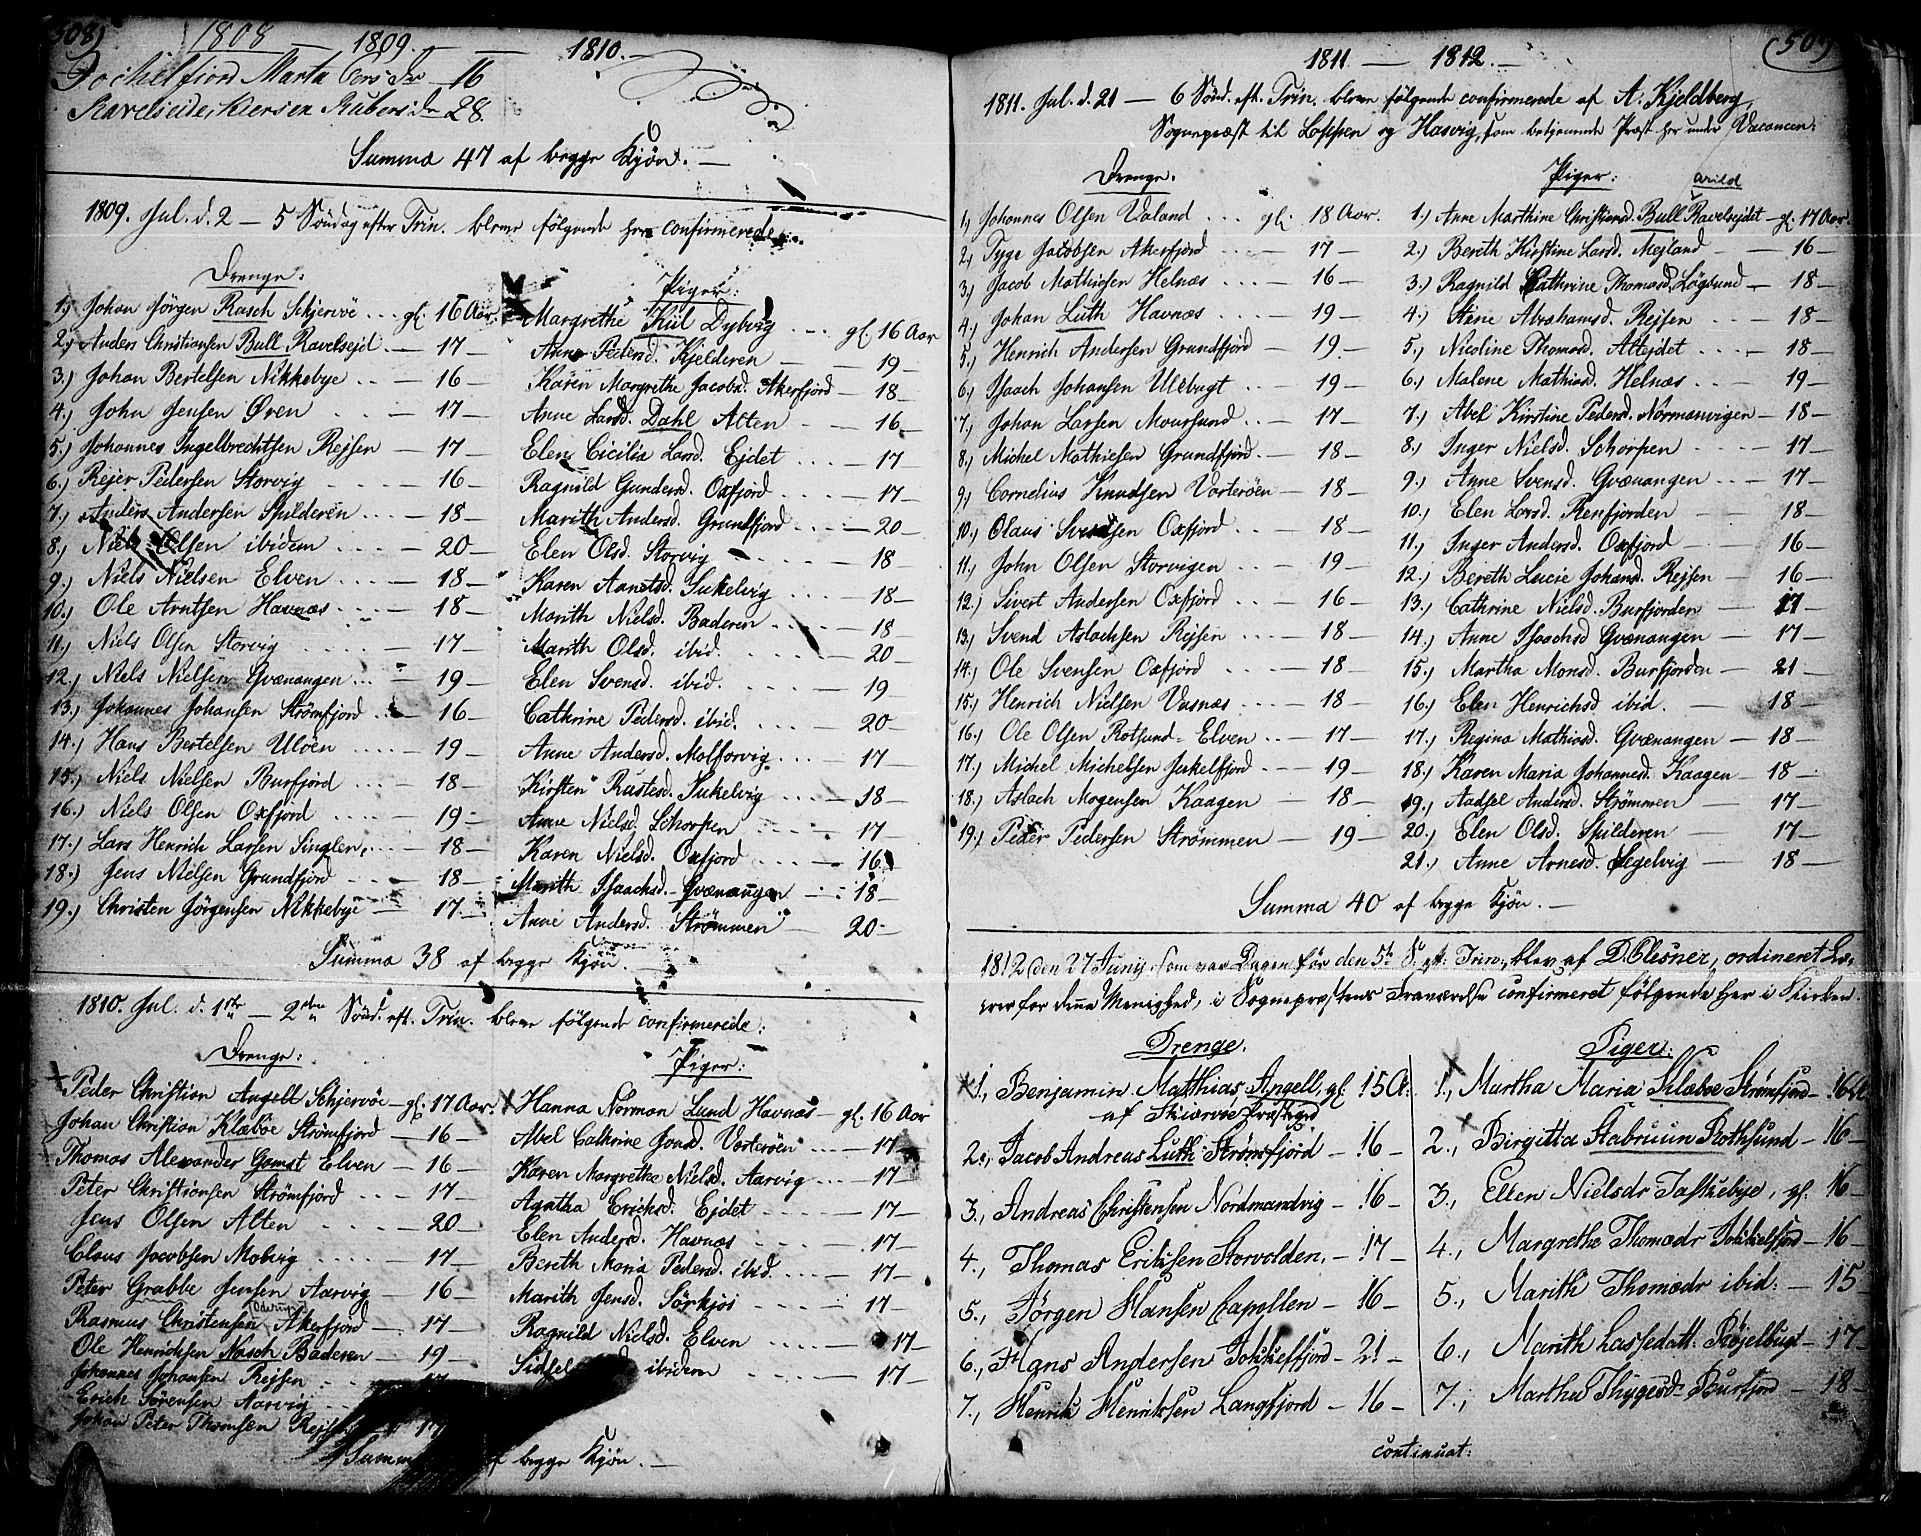 508)
1808 — 1809. — — 1810. —
Jochelfiord Marta Pers dr — 16
Ravelseide, Kiersen Rubers dr — 28.
Summa 47 af begge Kjøn. —
1809. Jul. d. 2 — 5 Söndag efter Trin. bleve følgende her confirmerede:
Drenge:
1.) Johan Jörgen Rasch Schjervöe ... gl. 16 Aar
2.) Anders Christiansen Bull Ravelsejd. — 17 —
3.) Johan Bertelsen Nikkebye ... — 16 —
4.) John Jensen Øren ... — 17 —
5.) Johannes Ingelbrechtsen Rejsen — 17 —
6.) Rejer Pedersen Storvig ... — 16 —
7.) Anders Andersen Spilderen ... — 18 —
8.) Niels Olsen ibidem ... — 20 —
9.) Niels Nielsen Elven ... — 18 —
10.) Ole Arntsen Havnæs ... — 18 —
11.) Niels Olsen Storvig ... — 17 —
12.) Niels Nielsen Qvænangen ... — 19 —
13.) Johannes Johansen Strömfjord ... — 16 —
14.) Hans Bertelsen Ulöen ... — 19 —
15.) Niels Nielsen Burfjord ... — 18 —
16.) Niels Olsen Oxfjord ... — 19 —
17.) Lars Henrich Larsen Singlen, ... — 18 —
18.) Jens Nielsen Grundfjord ... — 18 —
19.) Christen Jörgensen Nikkebye — 17 —
Piger:
Margrethe Kiil Dybvig ... gl. 16 Aar
Anne Pedersd. Kjelderen — 19 —
Karen Margrethe Jacobsd. Akerfjord — 18 —
Anne Larsd. Dahl Alten — 16 —
Elen Cicilia Larsd. Ejdet ... — 17
Ragnild Gundersd. Oxfjord ... — 17 —
Marith Andersd. Grundfjord ... — 20 —
Elen Olsd. Storvig ... 18
Karen Aanetsd. Jukelvig ... — 18 —
Marith Nielsd. Baderen ... — 18
Marith Olsd. ibid. ... — 20 —
Elen Svensd. ibid. ... — 19
Cathrine Pedersd. ibid. ... 20 —
Anne Andersd. Molforvig ... 17
Kirsten Rastesd. Jukelvig ... — 18 —
Anne Nielsd. Schorpen ... — 17 —
Karen Nielsd. Oxfjord ... — 16
Marith Isaachsd. Qvænangen ... 18 —
Anne Andersd. Strömmen — 20 —
Summa 38 af begge Kjön. —
1810. Jul. d. 1ste — 2den Sönd. eft. Trin. bleve følgende confirmerede:
Drenge:
Peder Christian Angell Schjervöe — gl. 17 Aar.
Johan Christian Klæboe Strömfjord — 16 —
Thomas Alexander Gamst Elven — 16 —
Peter Christiansen Strömfjord ... — 17 —
Jens Olsen Alten ... — 20 —
Claus Jacobsen Molvig ... — 17 —
Peter Grabbe Jensen Aarvig — 16 —
Rasmus Christensen Akerfjord — 17 —
Ole Henrichsen Nasch Baderen — 19 —
Johannes Johansen Rejsen ... 17
Erich Sörensen Aarvig ...
Johan Peter Thomsen Rejs 17
Piger:
Hanna Norman Lund Havnæs — gl. 16 Aar
Abel Cathrine Jonsd. Vorteröen ... — 17
Karen Margrethe Nielsd. Aarvig ... — 17 —
Agatha Erichsd. Ejdet ... — 17 —
Elen Andersd. Havnæs ... — 17 —
Bereth Maria Pedersd. ibid. ... — 17 —
Marith Jensd. Sörkjos ... — 17 —
Ragnild Nielsd. Elven ... 17 —
Sidsel ibidem ... — 17 —
Summ af begge Kjön. —
(509
1811 — 1812. —
1811. Jul. d. 21 — 6 Sönd. eft. Trin. bleve følgende confirmerede af A. Kjeldberg,
Sognepræst til Loppen og Hasvig, som betjenende Præst her under Vacancen:
Drenge.
1.) Johannes Olsen Valand ... gl. 18 Aar.
2.) Tyge Jacobsen Akerfjord — 17 —
3.) Jacob Mathiesen Helnæs ... — 16 —
4.) Johan Luth Havnæs ... — 19 —
5.) Henrich Andersen Grundfjord — 19 —
6.) Isaach Johansen Ulebugt ... — 19 —
7.) Johan Larsen Maursund ... — 17 —
8.) Michel Mathiesen Grundfjord. — 18 —
9.) Cornelius Knudsen Vorteröen — 18 —
10.) Olaus Svensen Oxfjord ... — 18 —
11.) John Olsen Storvigen ... — 19 —
12.) Sivert Andersen Oxfjord ... — 16 —
13.) Svend Aslachsen Rejsen ... — 18 —
14.) Ole Svensen Oxfjord ... — 18 —
15.) Henrich Nielsen Vasnæs ... — 18 —
16.) Ole Olsen Rotsund-Elven ... — 17 —
17.) Michel Michelsen Jukelfjord ... — 19 —
18.) Aslach Mogensen Kaagen — 18 —
19.) Peder Pedersen Strömmen — 19 —
Piger:
arild
1.) Anne Marthine Christiansd. Bull Ravelsejdet — gl. 17 Aar.
2.) Bereth Kirstine Larsd. Mejland — 16 —
3.) Ragnild Cathrine Thomasd. Lögsund — 18 —
4.) Stine Abrahamsd. Rejsen ... — 18 —
5.) Nicoline Thomasd. Altejdet ... — 18
6.) Malene Mathiasd. Helnæs ... — 19 —
7.) Abel Kirstine Pedersd. Normanvigen — 18 —
8.) Inger Nielsd. Schorpen ... — 17 —
9.) Anne Svensd. Qvænangen ... — 17 —
10.) Elen Larsd. Renfjorden — 18 —
11.) Inger Andersd. Oxfjord — 16 —
12.) Bereth Lucie Johansd. Rejsen — 16 —
13.) Cathrine Nielsd. Burfjorden — 17 —
14.) Anne Isaachsd. Qvænangen — 17 —
15.) Martha Monsd. Burfjorden — 21 —
16.) Elen Henrichsd ibid. — 18 —
17.) Regina Mathiasd. Qvænangen — 18 —
18.) Karen Maria Johannesd. Kaagen — 18 —
19.) Aadsel Andersd. Strömmen — 17 —
20.) Elen Olsd. Spilderen — 17 —
21.) Anne Arnesd. Segelvig — 18 —
Summa 40 af begge Kjön. —
1812 den 27 Junij, som var Dagen før den 5te S. eft. Trin:, blev af D. Elesner, ordineret Læ-
rer for denne Menighed, i Sognepræstens Fraværelse confirmeret følgende her i Kirken.
Drenge.
1., Benjamin Matthias Angell, gl. 15 A:
af Skiervøe Præstgrd
2., Jacob Andreas Luth Strömfjord — 16 —
3., Andreas Christensen Nordmandvig — 16 —
4., Thomas Eriksen Storvolden, — 17 —
5., Jörgen Hansen Capellen — 16 —
6., Hans Andersen Jokkelfjord — 21 —
7., Henrik Henriksen Langfjord — 16 —
Piger:
1., Martha Maria Klæboe Strömfjord — 16 A
2., Birgitta Stabruun Rothsund — 16 —
3., Ellen Nielsdr Taskebye, gl. 16 —
4., Margrethe Thomædr Jokkelfjord — 16 —
5., Marith Thomædr ibid: — 15
6., Marith Lassedatt. Röjelbugt — 17 —
7., Martha Thygesdr Burfjord — 18 —
continuat: